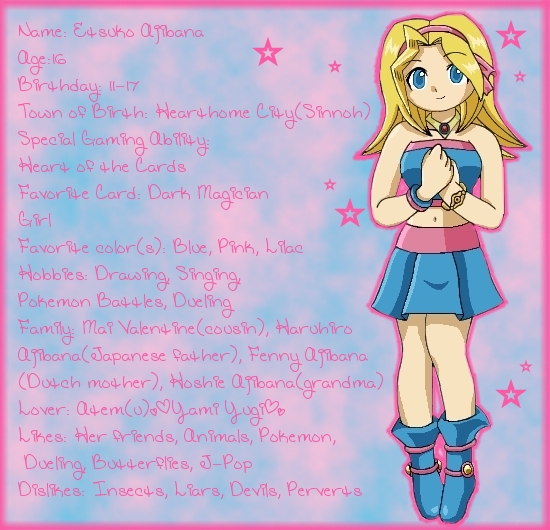 Name: Etsuko Ajibana
Age:16
Birthday: 11-17
Town of Birth: Hearthome City(Sinnoh)
Special Gaming Ability:
Heart of the Cards
Favorite Card: Dark Magician
Girl
Favorite color(s): Blue, Pink, Lilac
Hobbies: Drawing, Singing,
Pokemon Battles, Dueling
Family: Mai Valentine(cousin), Haruhiro
Ajibana(Japanese father), Fenny Ajibana
(Dutch mother), Hoshie Ajibana(grandma)
Lover: Atem(u)♥Yami Yugi♥
Likes: Her friends, Animals, Pokemon,
Dueling, Butterflies, J-Pop
Dislikes: Insects, Liars, Devils, Perverts